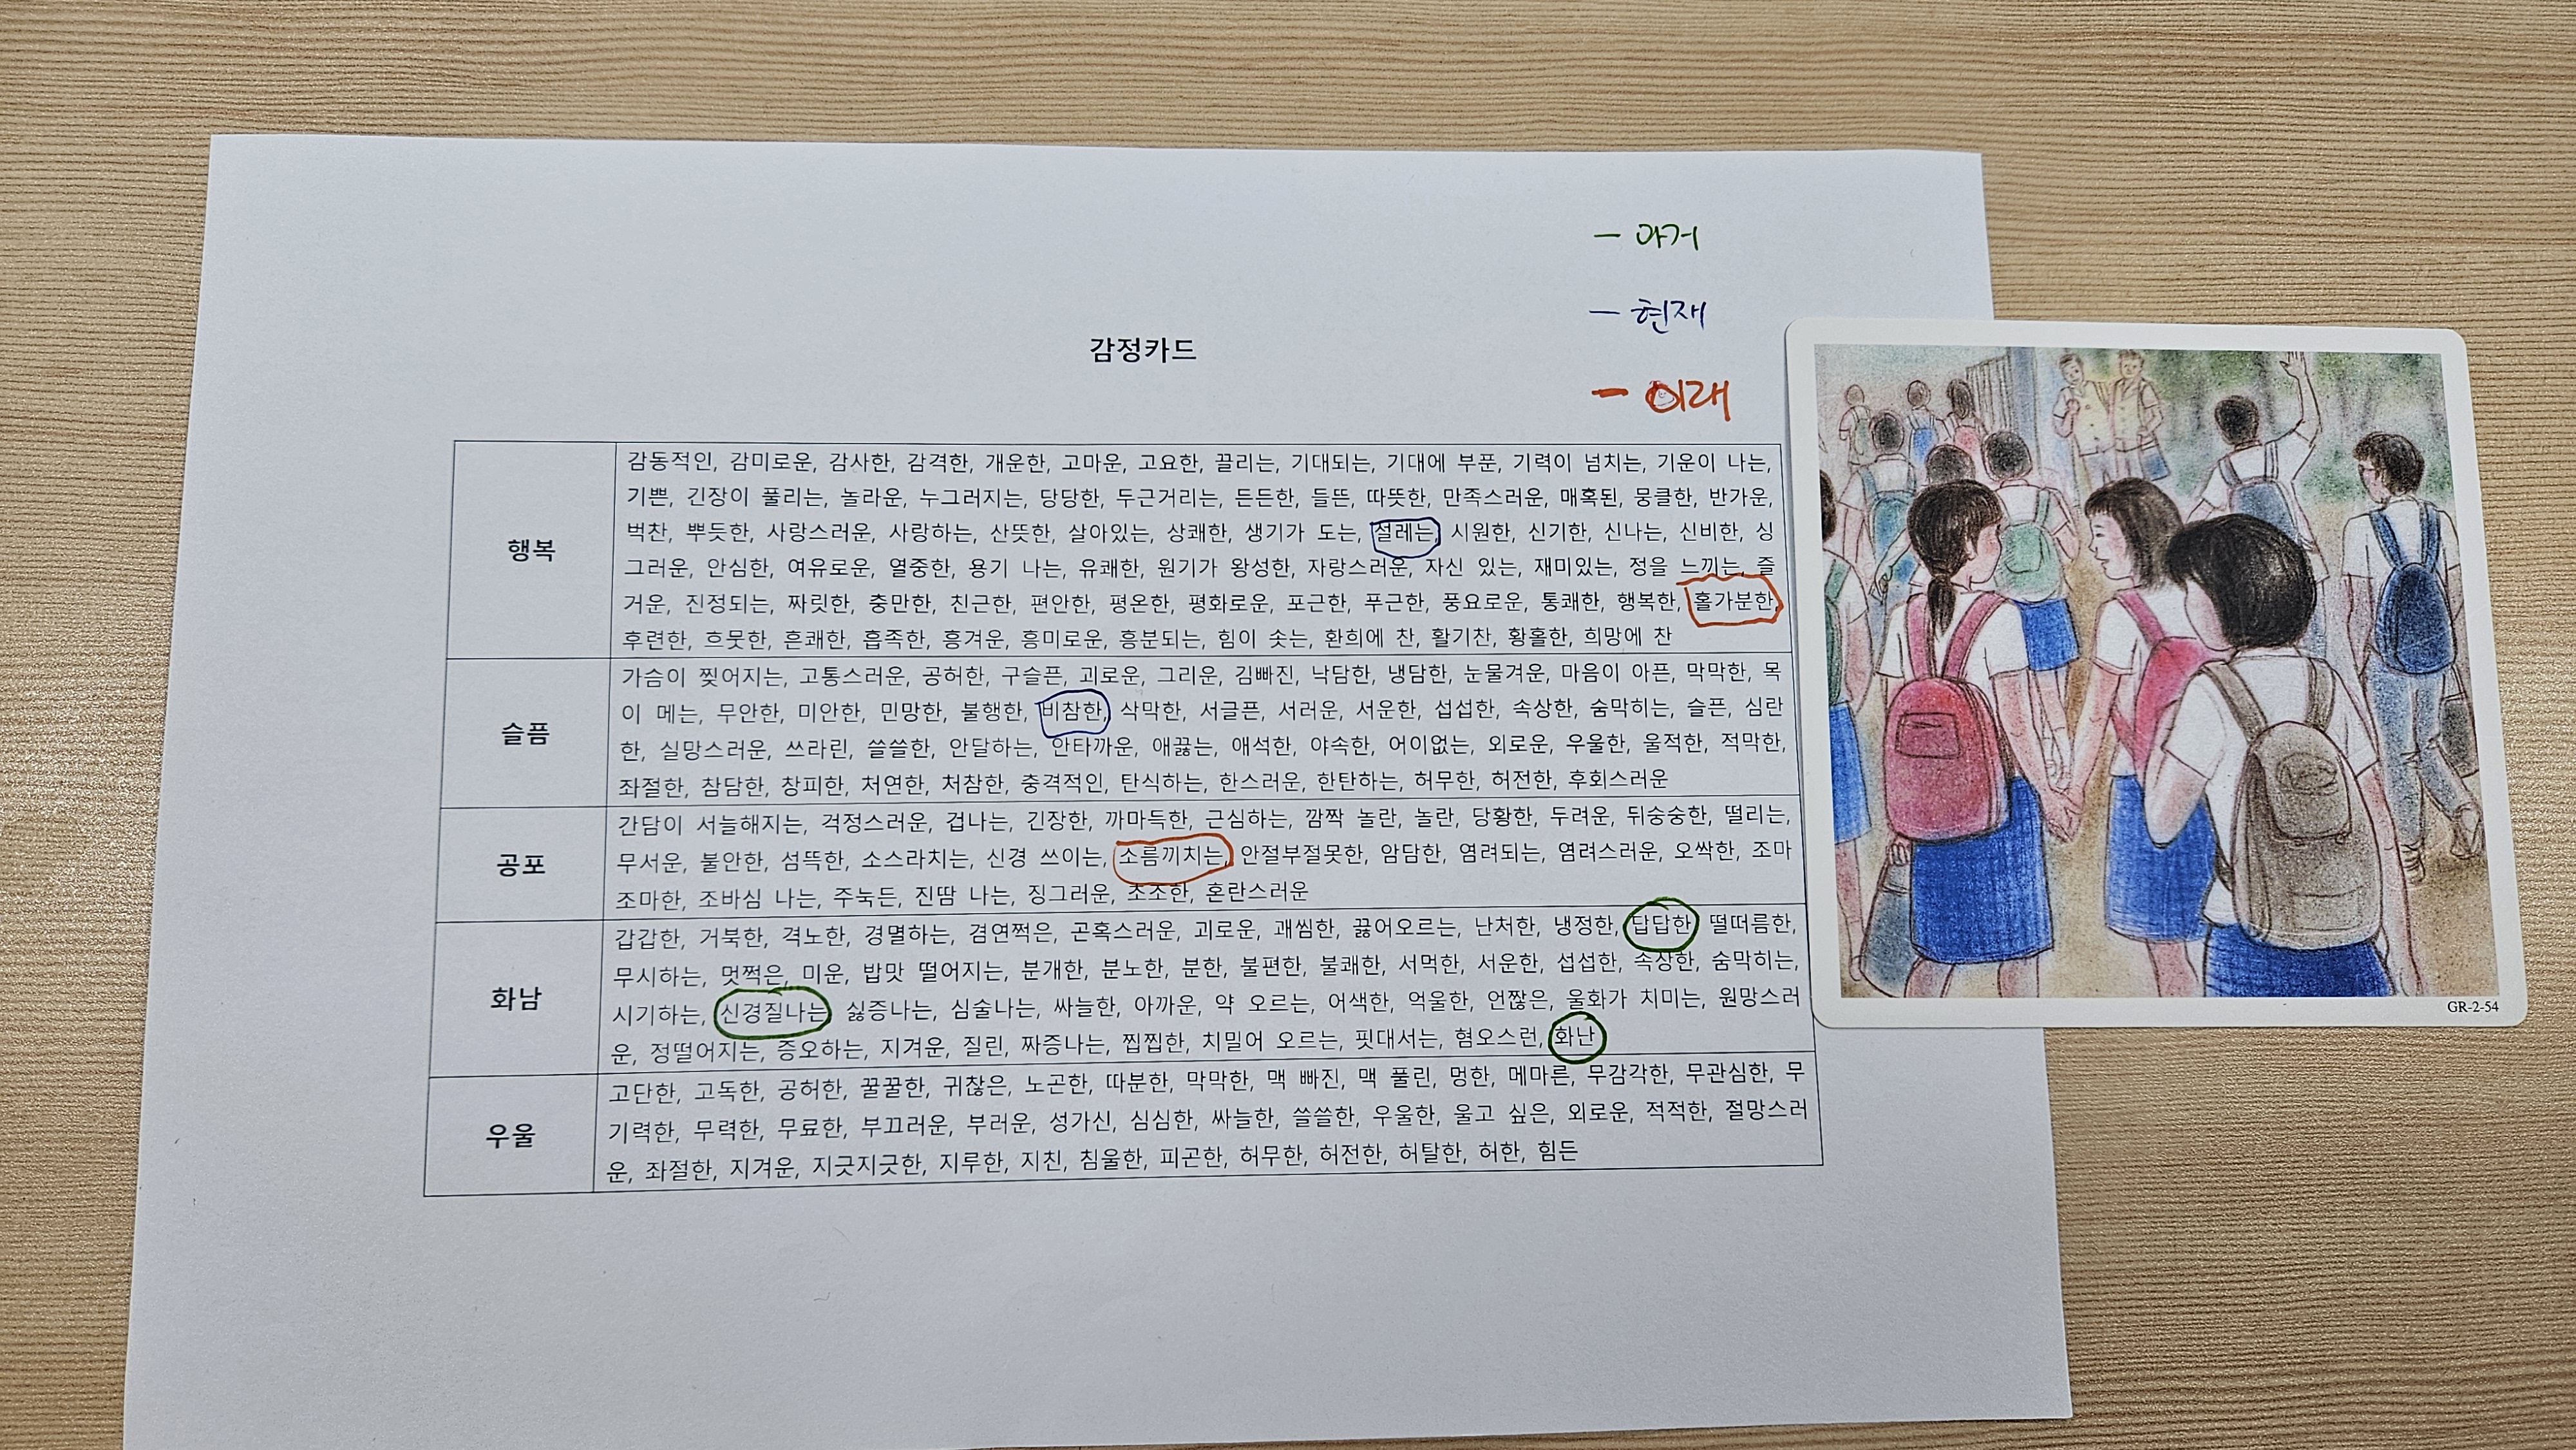 - 과거
- 현재
- 미래
감정카드
행복
감동적인, 감미로운, 감사한, 감격한, 개운한, 고마운, 고요한, 끌리는, 기대되는, 기대에 부푼, 기력이 넘치는, 기운이 나는,
기쁜, 긴장이 풀리는, 놀라운, 누그러지는, 당당한, 두근거리는, 든든한, 들뜬, 따뜻한, 만족스러운, 매혹된, 뭉클한, 반가운,
벅찬, 뿌듯한, 사랑스러운, 사랑하는, 산뜻한, 살아있는, 상쾌한, 생기가 도는, 설레는, 시원한, 신기한, 신나는, 신비한, 싱
그러운, 안심한, 여유로운, 열중한, 용기 나는, 유쾌한, 원기가 왕성한, 자랑스러운, 자신 있는, 재미있는, 정을 느끼는, 즐
거운, 진정되는, 짜릿한, 충만한, 친근한, 편안한, 평온한, 평화로운, 포근한, 푸근한, 풍요로운, 통쾌한, 행복한, 홀가분한,
후련한, 흐뭇한, 흔쾌한, 흡족한, 흥겨운, 흥미로운, 흥분되는, 힘이 솟는, 환희에 찬, 활기찬, 황홀한, 희망에 찬
슬픔
가슴이 찢어지는, 고통스러운, 공허한, 구슬픈, 괴로운, 그리운, 김빠진, 낙담한, 냉담한, 눈물겨운, 마음이 아픈, 막막한, 목
이 메는, 무안한, 미안한, 민망한, 불행한, 비참한, 삭막한, 서글픈, 서러운, 서운한, 섭섭한, 속상한, 숨막히는, 슬픈, 심란
한, 실망스러운, 쓰라린, 쓸쓸한, 안달하는, 안타까운, 애끓는, 애석한, 야속한, 어이없는, 외로운, 우울한, 울적한, 적막한,
좌절한, 참담한, 창피한, 처연한, 처참한, 충격적인, 탄식하는, 한스러운, 한탄하는, 허무한, 허전한, 후회스러운
공포
간담이 서늘해지는, 걱정스러운, 겁나는, 긴장한, 까마득한, 근심하는, 깜짝 놀란, 놀란, 당황한, 두려운, 뒤숭숭한, 떨리는,
무서운, 불안한, 섬뜩한, 소스라치는, 신경 쓰이는, 소름끼치는, 안절부절못한, 암담한, 염려되는, 염려스러운, 오싹한, 조마
조마한, 조바심 나는, 주눅든, 진땀 나는, 징그러운, 초조한, 혼란스러운
화남
갑갑한, 거북한, 격노한, 경멸하는, 겸연쩍은, 곤혹스러운, 괴로운, 괘씸한, 끓어오르는, 난처한, 냉정한, 답답한 떨떠름한,
무시하는, 멋쩍은, 미운, 밥맛 떨어지는, 분개한, 분노한, 분한, 불편한, 불쾌한, 서먹한, 서운한, 섭섭한, 속상한, 숨막히는,
시기하는, 신경질나는 싫증나는, 심술나는, 싸늘한, 아까운, 약 오르는, 어색한, 억울한, 언짢은, 울화가 치미는, 원망스러
운, 정떨어지는, 증오하는, 지겨운, 질린, 짜증나는, 찝찝한, 치밀어 오르는, 핏대서는, 혐오스런, 화난
우울
고단한, 고독한, 공허한, 꿀꿀한, 귀찮은, 노곤한, 따분한, 막막한, 맥 빠진, 맥 풀린, 멍한, 메마른, 무감각한, 무관심한, 무
기력한, 무력한, 무료한, 부끄러운, 부러운, 성가신, 심심한, 싸늘한, 쓸쓸한, 우울한, 울고 싶은, 외로운, 적적한, 절망스러
운, 좌절한, 지겨운, 지긋지긋한, 지루한, 지친, 침울한, 피곤한, 허무한, 허전한, 허탈한, 허한, 힘든
GR-2-54